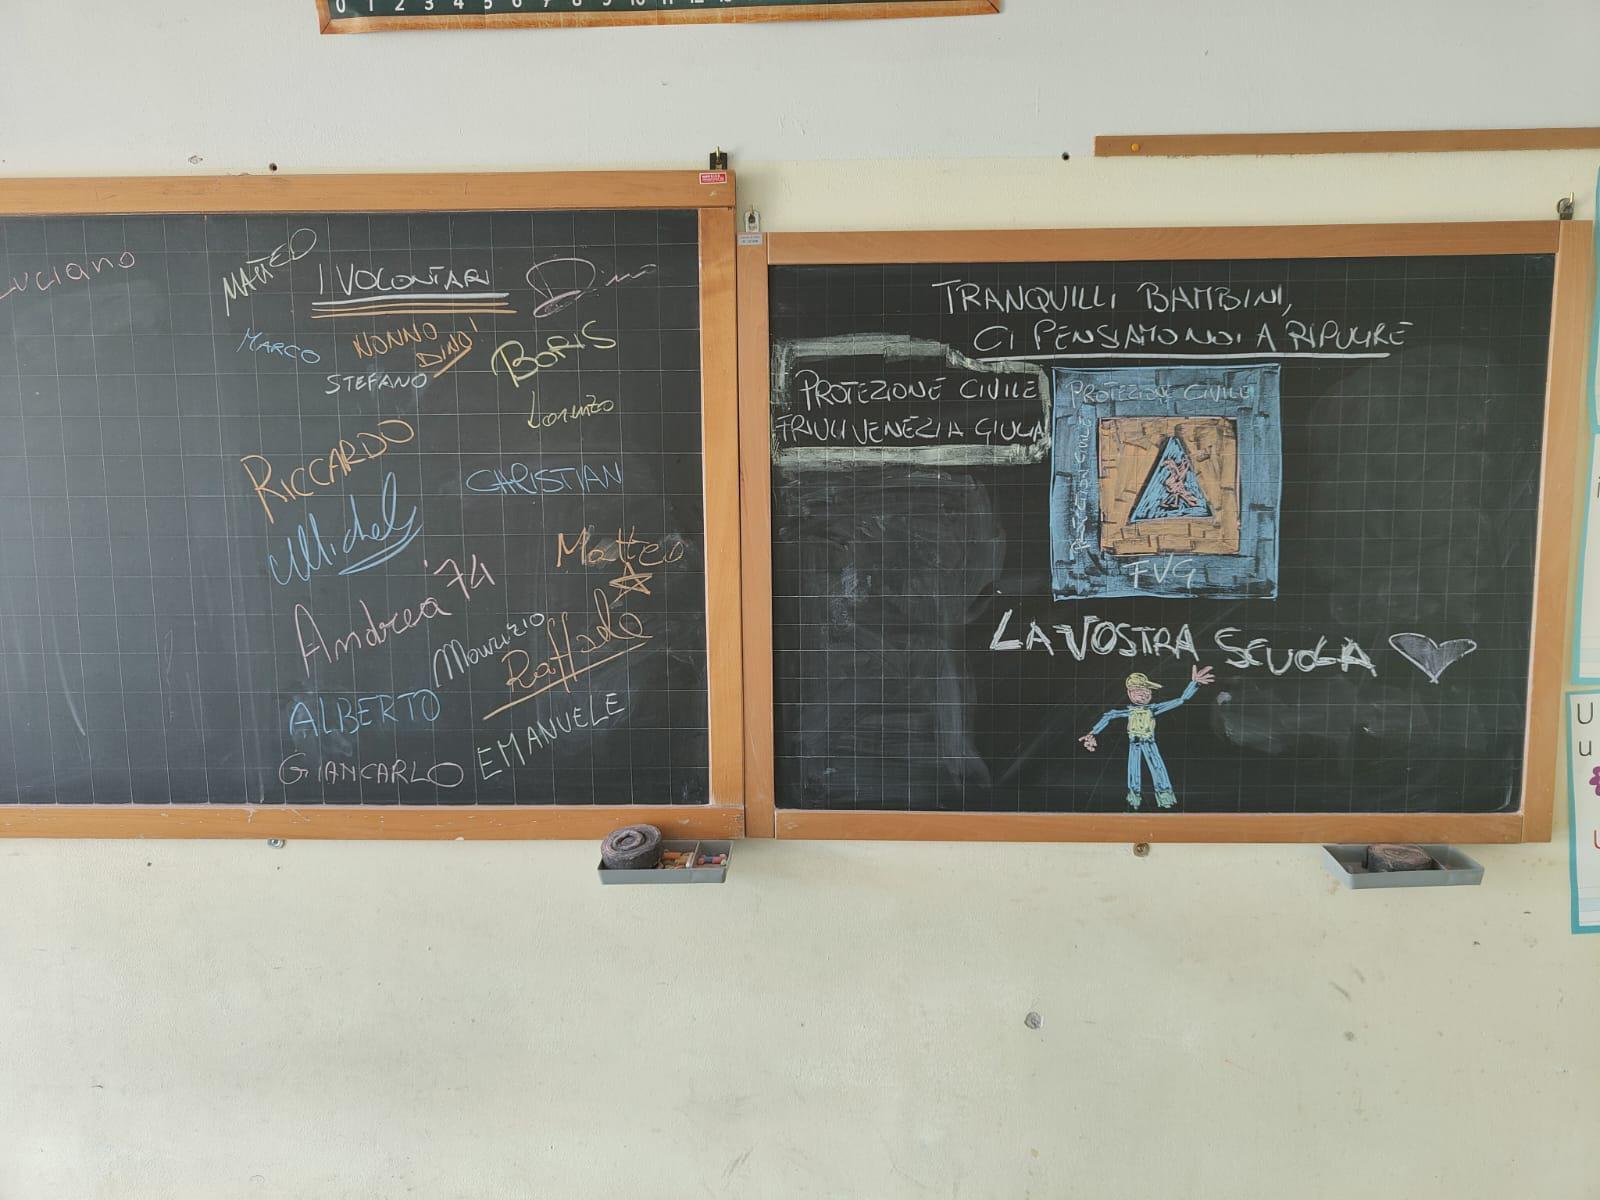 0 1 2 3 4 5 6 7 8 9 10 11 12
Luciano
MATTEO
I VOLONTARI
Dino
MARCO
NONNO
DINO!
STEFANO
BORIS
Lorenzo
RICCARDO
CHRISTIAN
Michele
Matteo
Andrea '74
Maurizio
Raffaele
ALBERTO
EMANUELE
GIANCARLO
TRANQUILLI BAMBINI,
CI PENSIAMO NOI A RIPULIRE
PROTEZIONE CIVILE
FRIULI VENEZIA GIULIA
PROTEZIONE CIVILE
PROTEZIONE CIVILE
FVG
LA VOSTRA SCUOLA
U
u